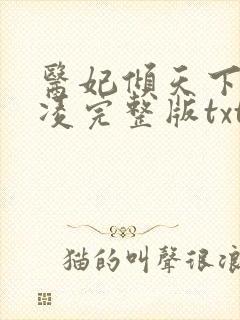 醫妃傾天下
凌完整版txt
猫的叫聲很浪